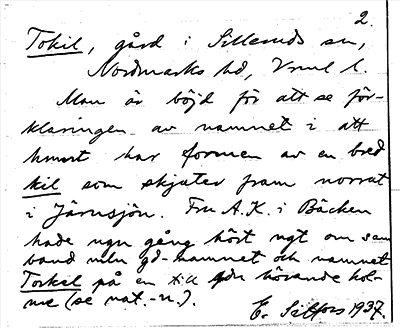 2.
Tokil, gård i Silleruds sn,
Nordmarks hd, Vrml l.
Man är böjd för att se för-
klaringen av namnet i att
hmnt har formen av en bred
kil som skjuter fram norrut
i Järnsjön. Fru A.K. i Bäcken
hade ngn gång hört ngt om sam
band mln gd-namnet och namnet
Torkel på en t. a gdn hörande hol-
me (se nat.-n.).
E. Silfors 1937.